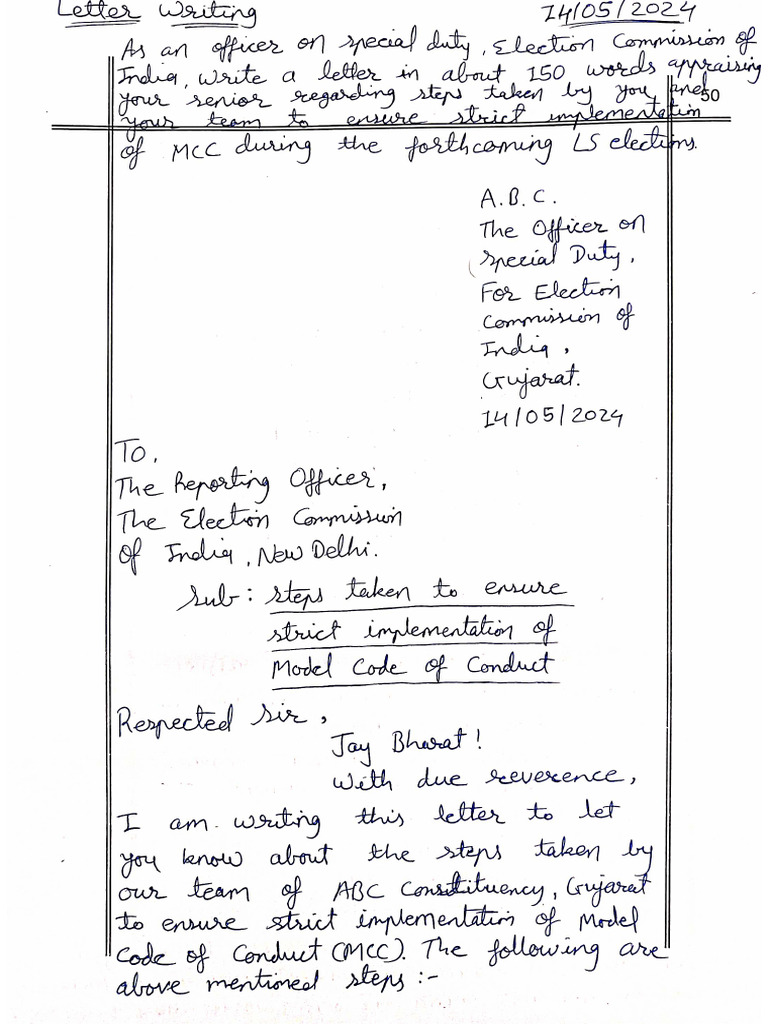 Letter Writing
14/05/2024
As an officer on special duty, Election Commission of
India, write a letter in about 150 words appraising
your senior regarding steps taken by you and
50
your team to ensure strict implementation
of MCC during the forthcoming LS elections.
A.B.C.
The Officer on
special Duty,
For Election
Commission of
India,
Gujarat.
14/05/2024
To,
The Reporting Officer,
The Election Commission
of India, New Delhi.
Sub: steps taken to ensure
strict implementation of
Model Code of Conduct
Respected Sir,
Jay Bharat!
With due reverence,
I am writing this letter to let
you know about the steps taken by
our team of ABC Constituency, Gujarat
to ensure strict implementation of Model
Code of Conduct (MCC). The following are
above mentioned steps :-